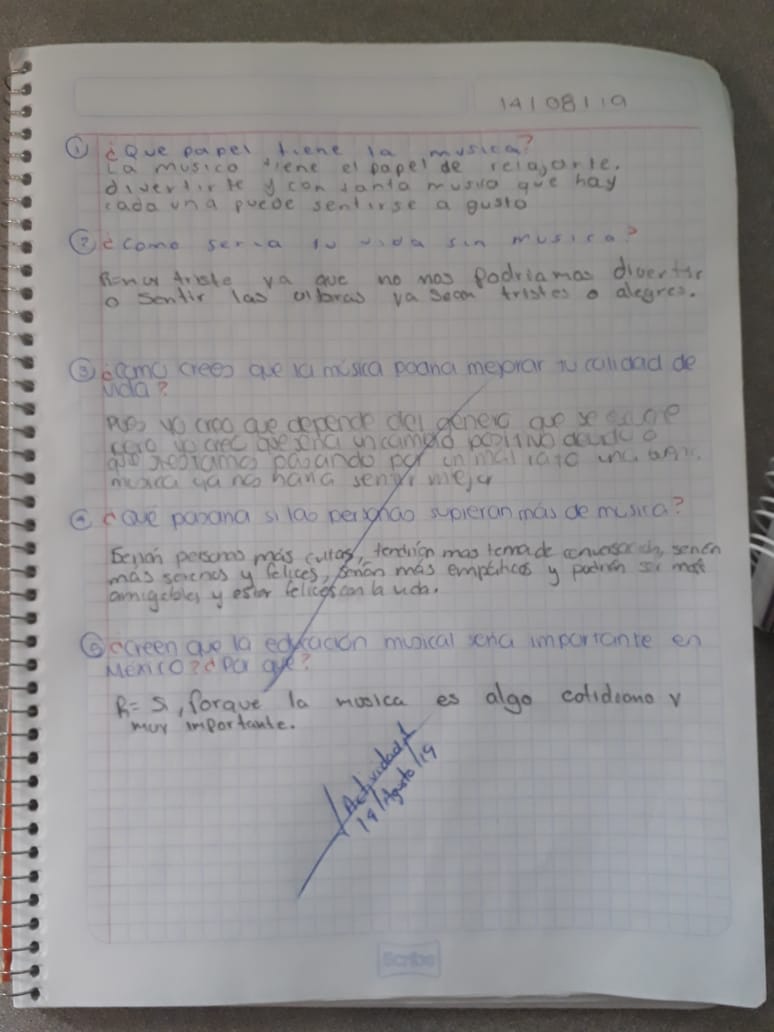 14/08/19
① ¿Que papel tiene la musica?
La musica tiene el papel de relajarte,
divertirte y con tanta musica que hay
cada una puede sentirse a gusto
② ¿Como seria tu vida sin musica?
R= muy triste ya que no nos podriamos divertir
o sentir las vibras ya sean tristes o alegres.
③ ¿Como crees que la música podria mejorar tu calidad de
vida?
Pues yo creo que depende del genero que se
pero yo creo que seria un cambio positivo debido a
que si estamos pasando por un mal rato una
musica ya nos haria sentir mejor
④ ¿Qué pasaria si las personas supieran más de musica?
Serián personas más cultas, tendrían mas tema de conversación, serían
más serenos y felices, serían más empáticos y podrían ser más
amigables y estar felices con la vida.
⑤ ¿Creen que la educación musical seria importante en
México? ¿Por qué?
R= Si, Porque la musica es algo cotidiano y
muy importante.
Actividad 1
14/Agosto/19
Scribe